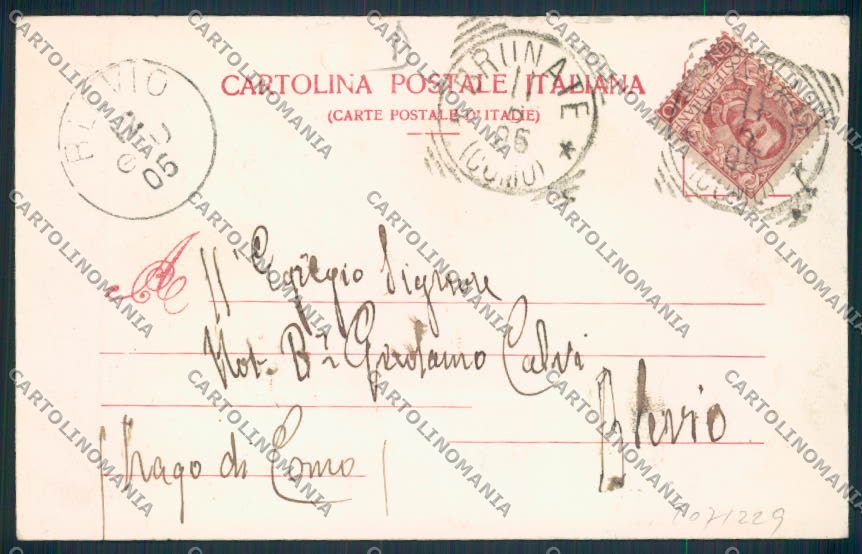 CARTOLINA POSTALE ITALIANA
(CARTE POSTALE D'ITALIE)
BLEVIO
05
BRUNATE
11
06
(COMO)
A
ll' Egregio Signore
Not. Br. Girolamo Calvi
Blevio
(Lago di Como)
1071229
CARTOLINOMANIA